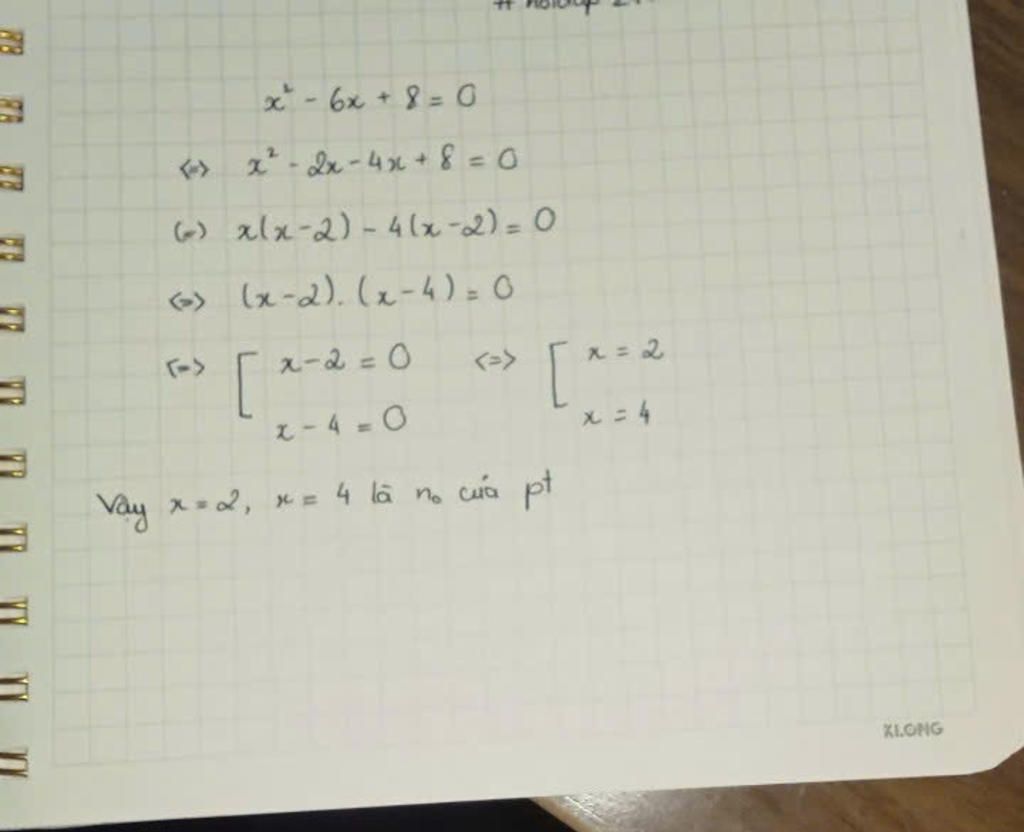 x² - 6x + 8 = 0
<=> x² - 2x - 4x + 8 = 0
<=> x(x-2) - 4(x-2) = 0
<=> (x-2).(x-4) = 0
<=> [ x-2 = 0 <=> [ x = 2
x - 4 = 0 x = 4
Vậy x = 2, x = 4 là no của pt
KLONG